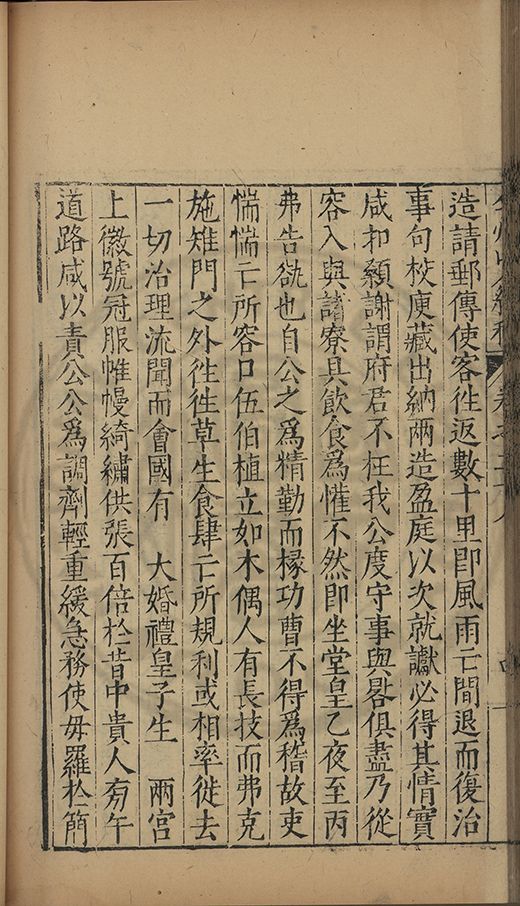 造請郵傳使客徃返數十里即風雨亡間退而復治
事句校庾藏出納兩造盈庭以次就讞必得其情實
咸扣顙謝謂府君不枉我公度守事與晷俱盡乃從
容入與諸寮具飲食爲懽不然即坐堂皇乙夜至丙
弗告欲也自公之爲精勤而椽功曹不得爲稽故吏
惴惴亡所容口伍伯植立如木偶人有長技而弗克
施雉門之外徃徃草生食肆亡所規利或相率徙去
一切治理流聞而會國有　大婚禮皇子生　兩宮
上徽號冠服帷幔綺繡供張百倍於昔中貴人旁午
道路咸以責公公爲調劑輕重緩急務使毋羅於箾